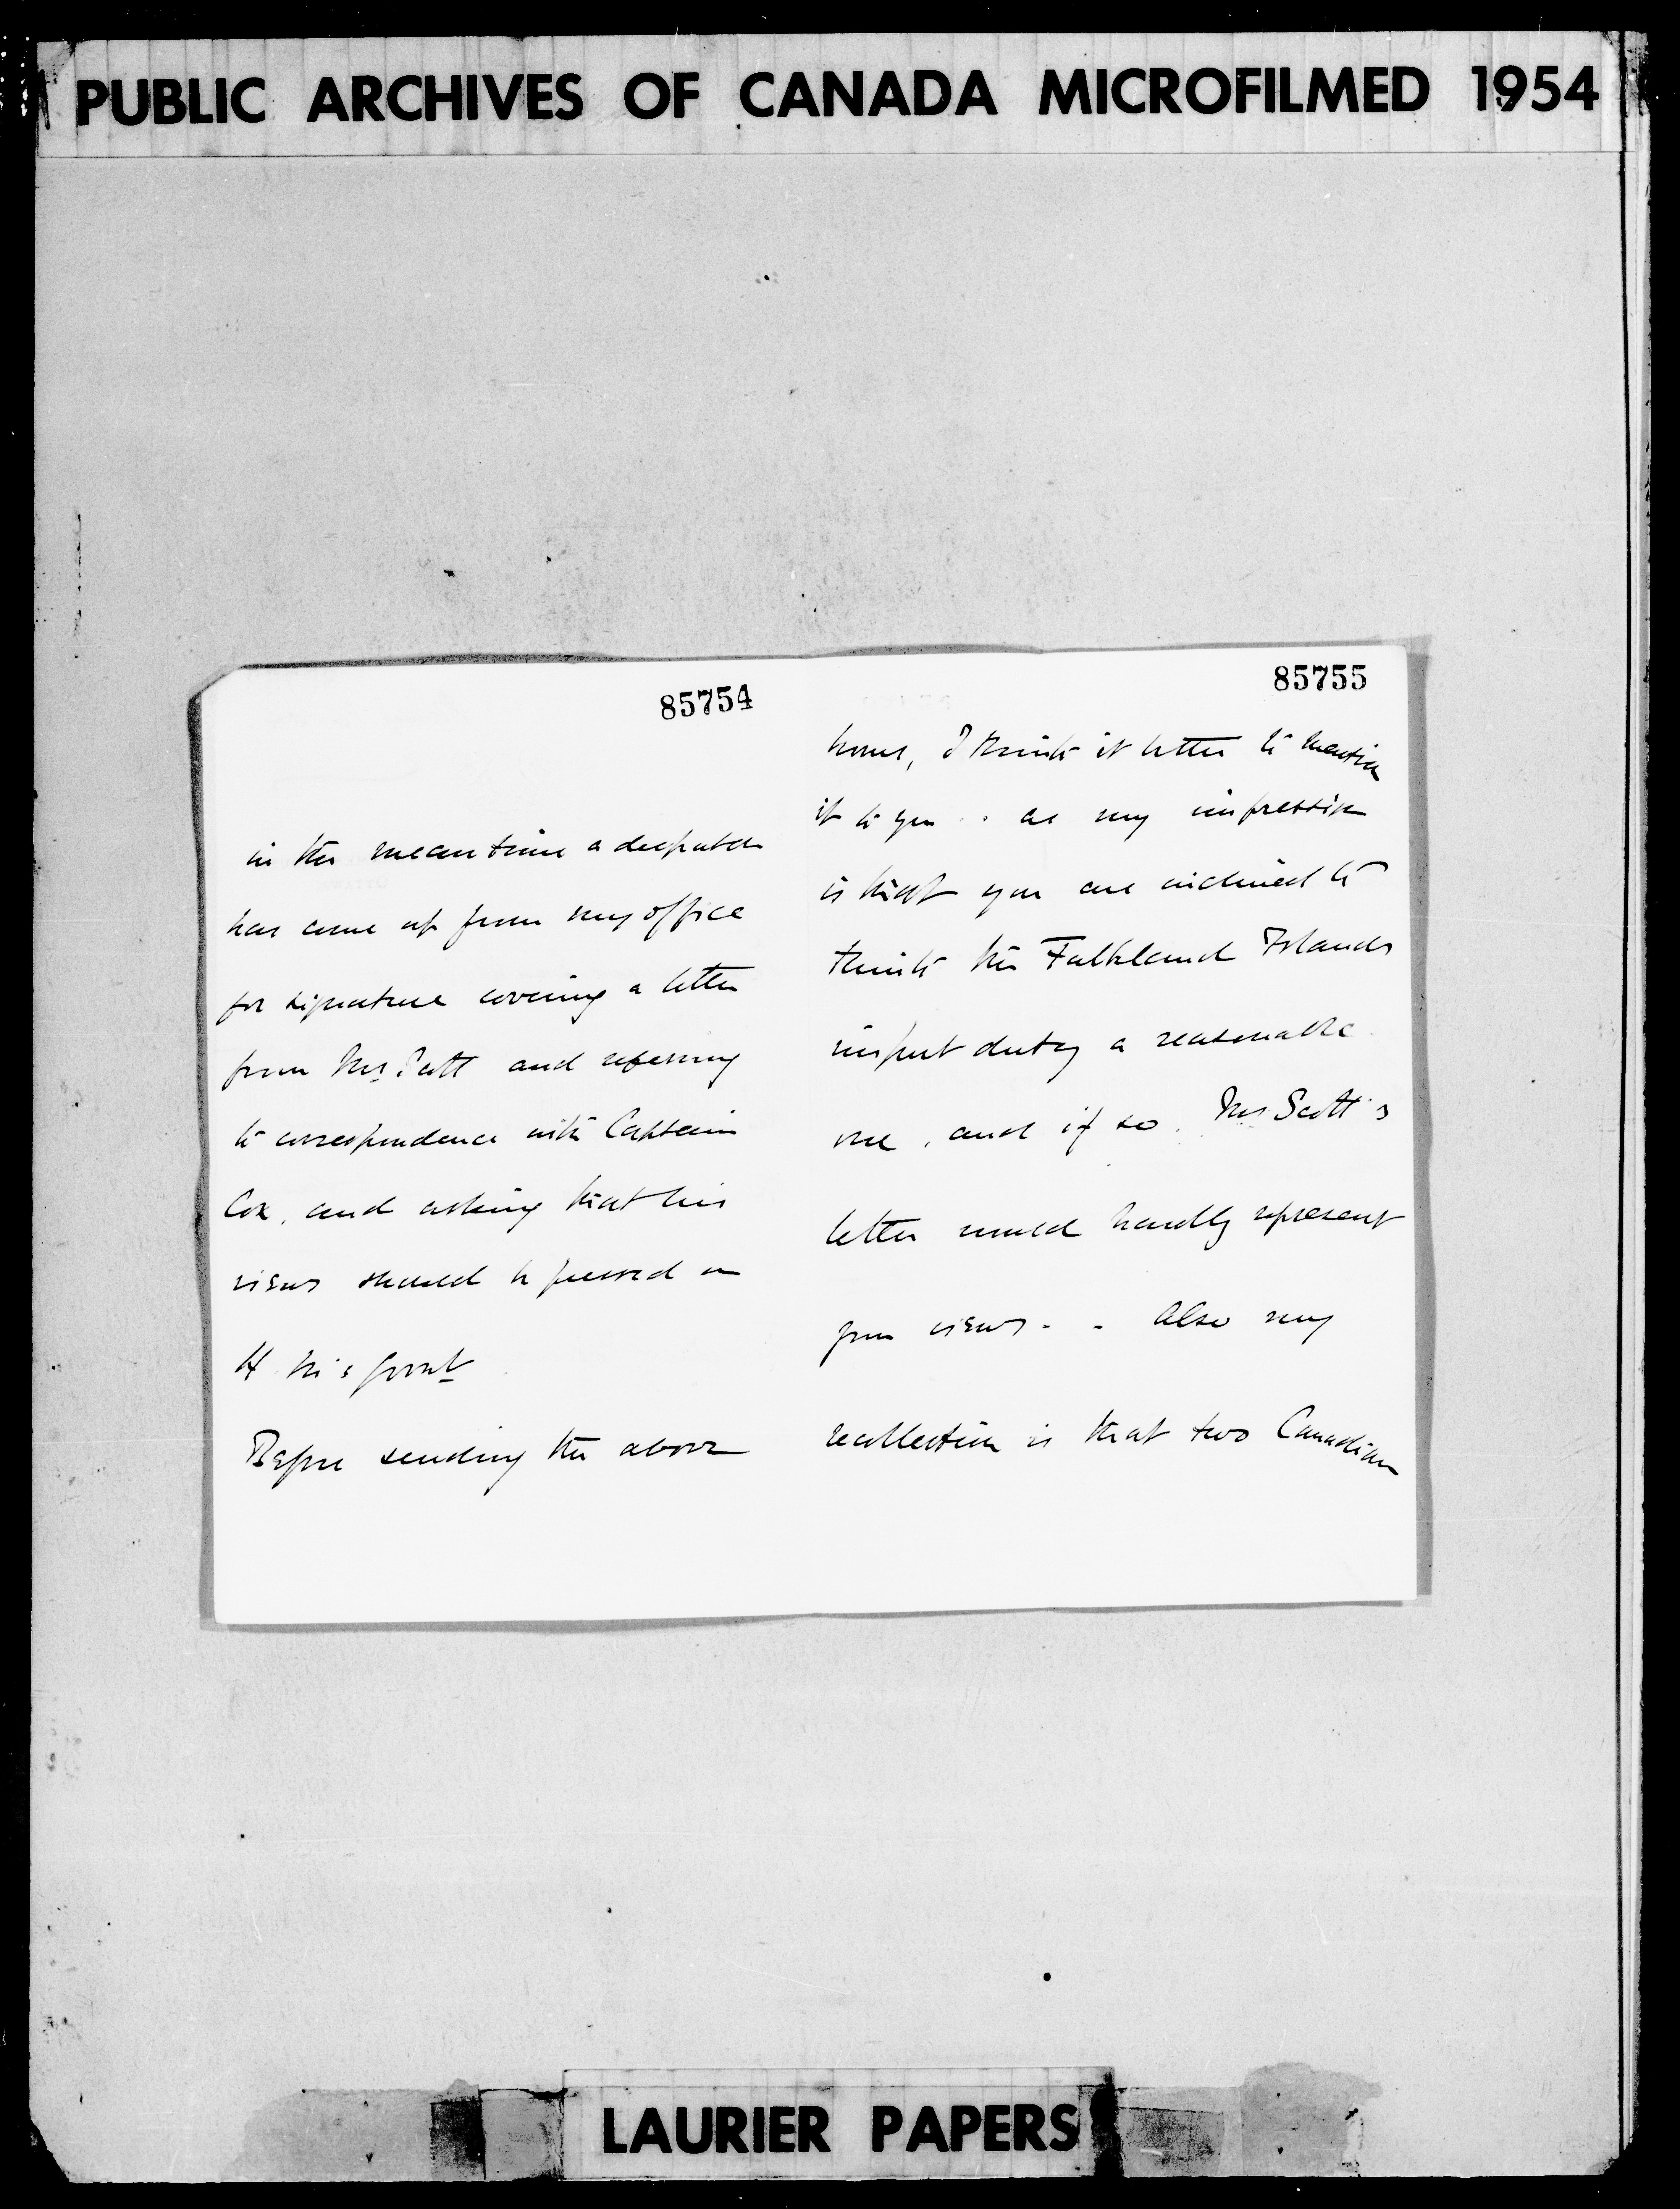 PUBLIC ARCHIVES OF CANADA MICROFILMED 1954
85754
in the meantime a despatch
has come up from my office
for signature covering a letter
from Mr. Scott and referring
to correspondence with Captain
Cox, and asking that his
views should be pressed on
H. M's Govnt
Before sending the above
85755
home, I think it better to mention
it to you. as my impression
is that you are inclined to
think the Falkland Islands
import duty a reasonable
one, and if so, Mr Scott's
letter would hardly represent
your views. - Also my
recollection is that two Canadian
LAURIER PAPERS